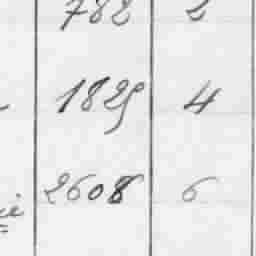 782 2
1825 4
2608 6